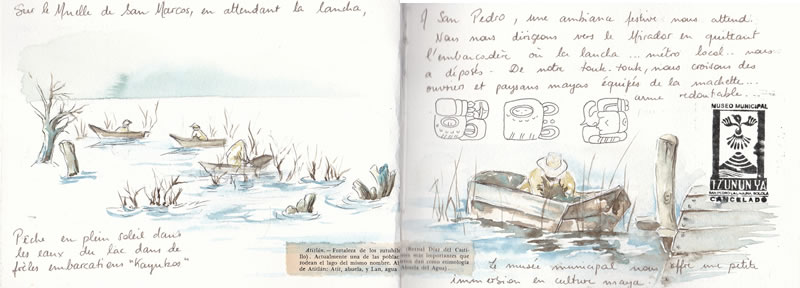 Sur le Muelle de San Marcos, en attendant la lancha,
Pêche en plein soleil dans
les eaux du lac dans de
frêles embarcations "Kayukos"
A San Pedro, une ambiance festive nous attend.
Nous nous dirigeons vers le Mirador en quittant
l'embarcadère où la lancha ... métro local.. nous
a déposés. De notre touk-touk, nous croisons des
ouvriers et paysans mayas équipés de la machette...
arme redoutable....
MUSEO MUNICIPAL
TZUNUN YA
SAN PEDRO LA LAGUNA, SOLOLA
CANCELADO
atitlán.—Fortaleza de los zutuhiles (Bernal Díaz del Casti-
llo). Actualmente una de las poblac más importantes que
rodean el lago del mismo nombre.
de Atitlán: Atit, abuela, y Lan, agua (Abuela del Agua)
Le musée municipal nous offre une petite
immersion en culture maya.